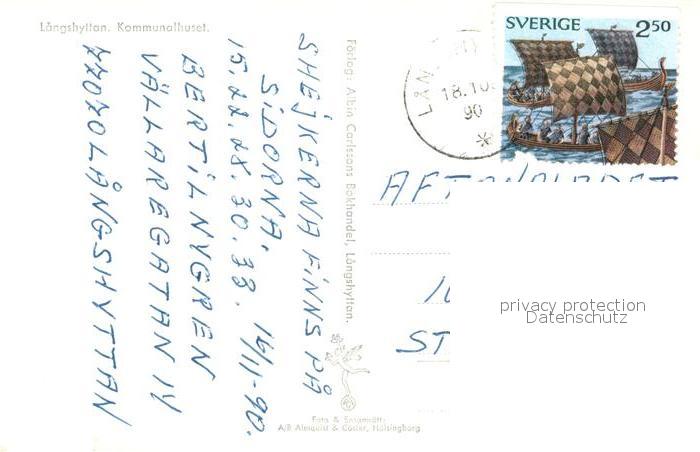 Långshyttan. Kommunalhuset.
SHEJKERNA FINNS PÅ
SIDORNA.
15.22.28.30.33. 16/11-90.
BERTIL NYGREN
VALLAREGATAN 14
77070 LÅNGSHYTTAN
Förlag: Albin Carlssons Bokhandel, Långshyttan.
Foto & Ensamrätt:
A/B Almquist & Cöster, Hälsingborg
SVERIGE 2 50
LÅN
18.10
90
AFTONBLADET
ST
privacy protection
Datenschutz